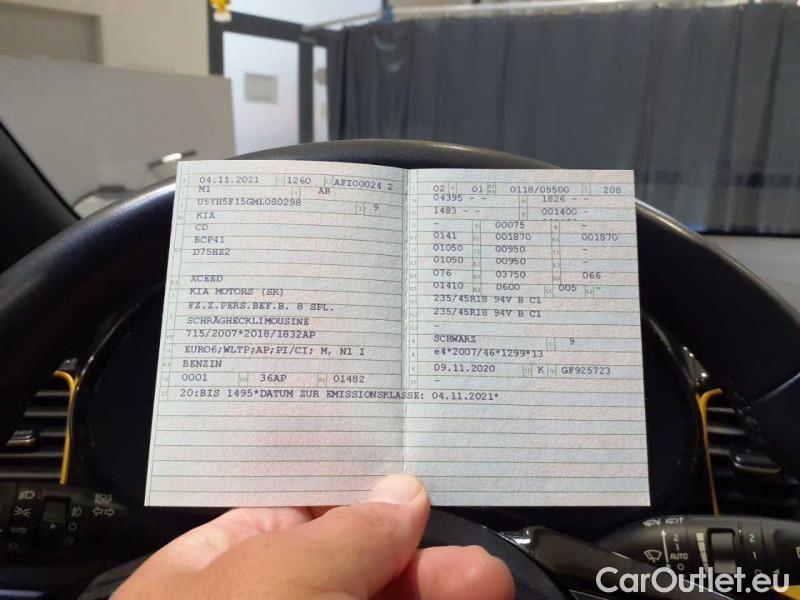 04.11.2021 1260 AFI00024 2
M1 AB
U5YH5F15GML080298 9
KIA
CD
BCP41
D75HZ2
XCEED
KIA MOTORS (SK)
FZ.Z.PERS.BEF.B. 8 SPL.
SCHRÄGHECKLIMOUSINE
715/2007*2018/1832AP
EURO6;WLTP;AP;PI/CI; M, N1 I
BENZIN
0001 36AP 01482
20:BIS 1495*DATUM ZUR EMISSIONSKLASSE: 04.11.2021*
02 01 0118/05500 208
04395 - - 1826 - -
1483 - - 001400 -
- 00075 -
0141 001870 001870
01050 00950 -
01050 00950 -
076 03750 066
01410 0600 005 -
235/45R18 94V B C1
235/45R18 94V B C1
-
SCHWARZ 9
e4*2007/46*1299*13
09.11.2020 K GF925723
-
AUTO
AUTO
CarOutlet.eu